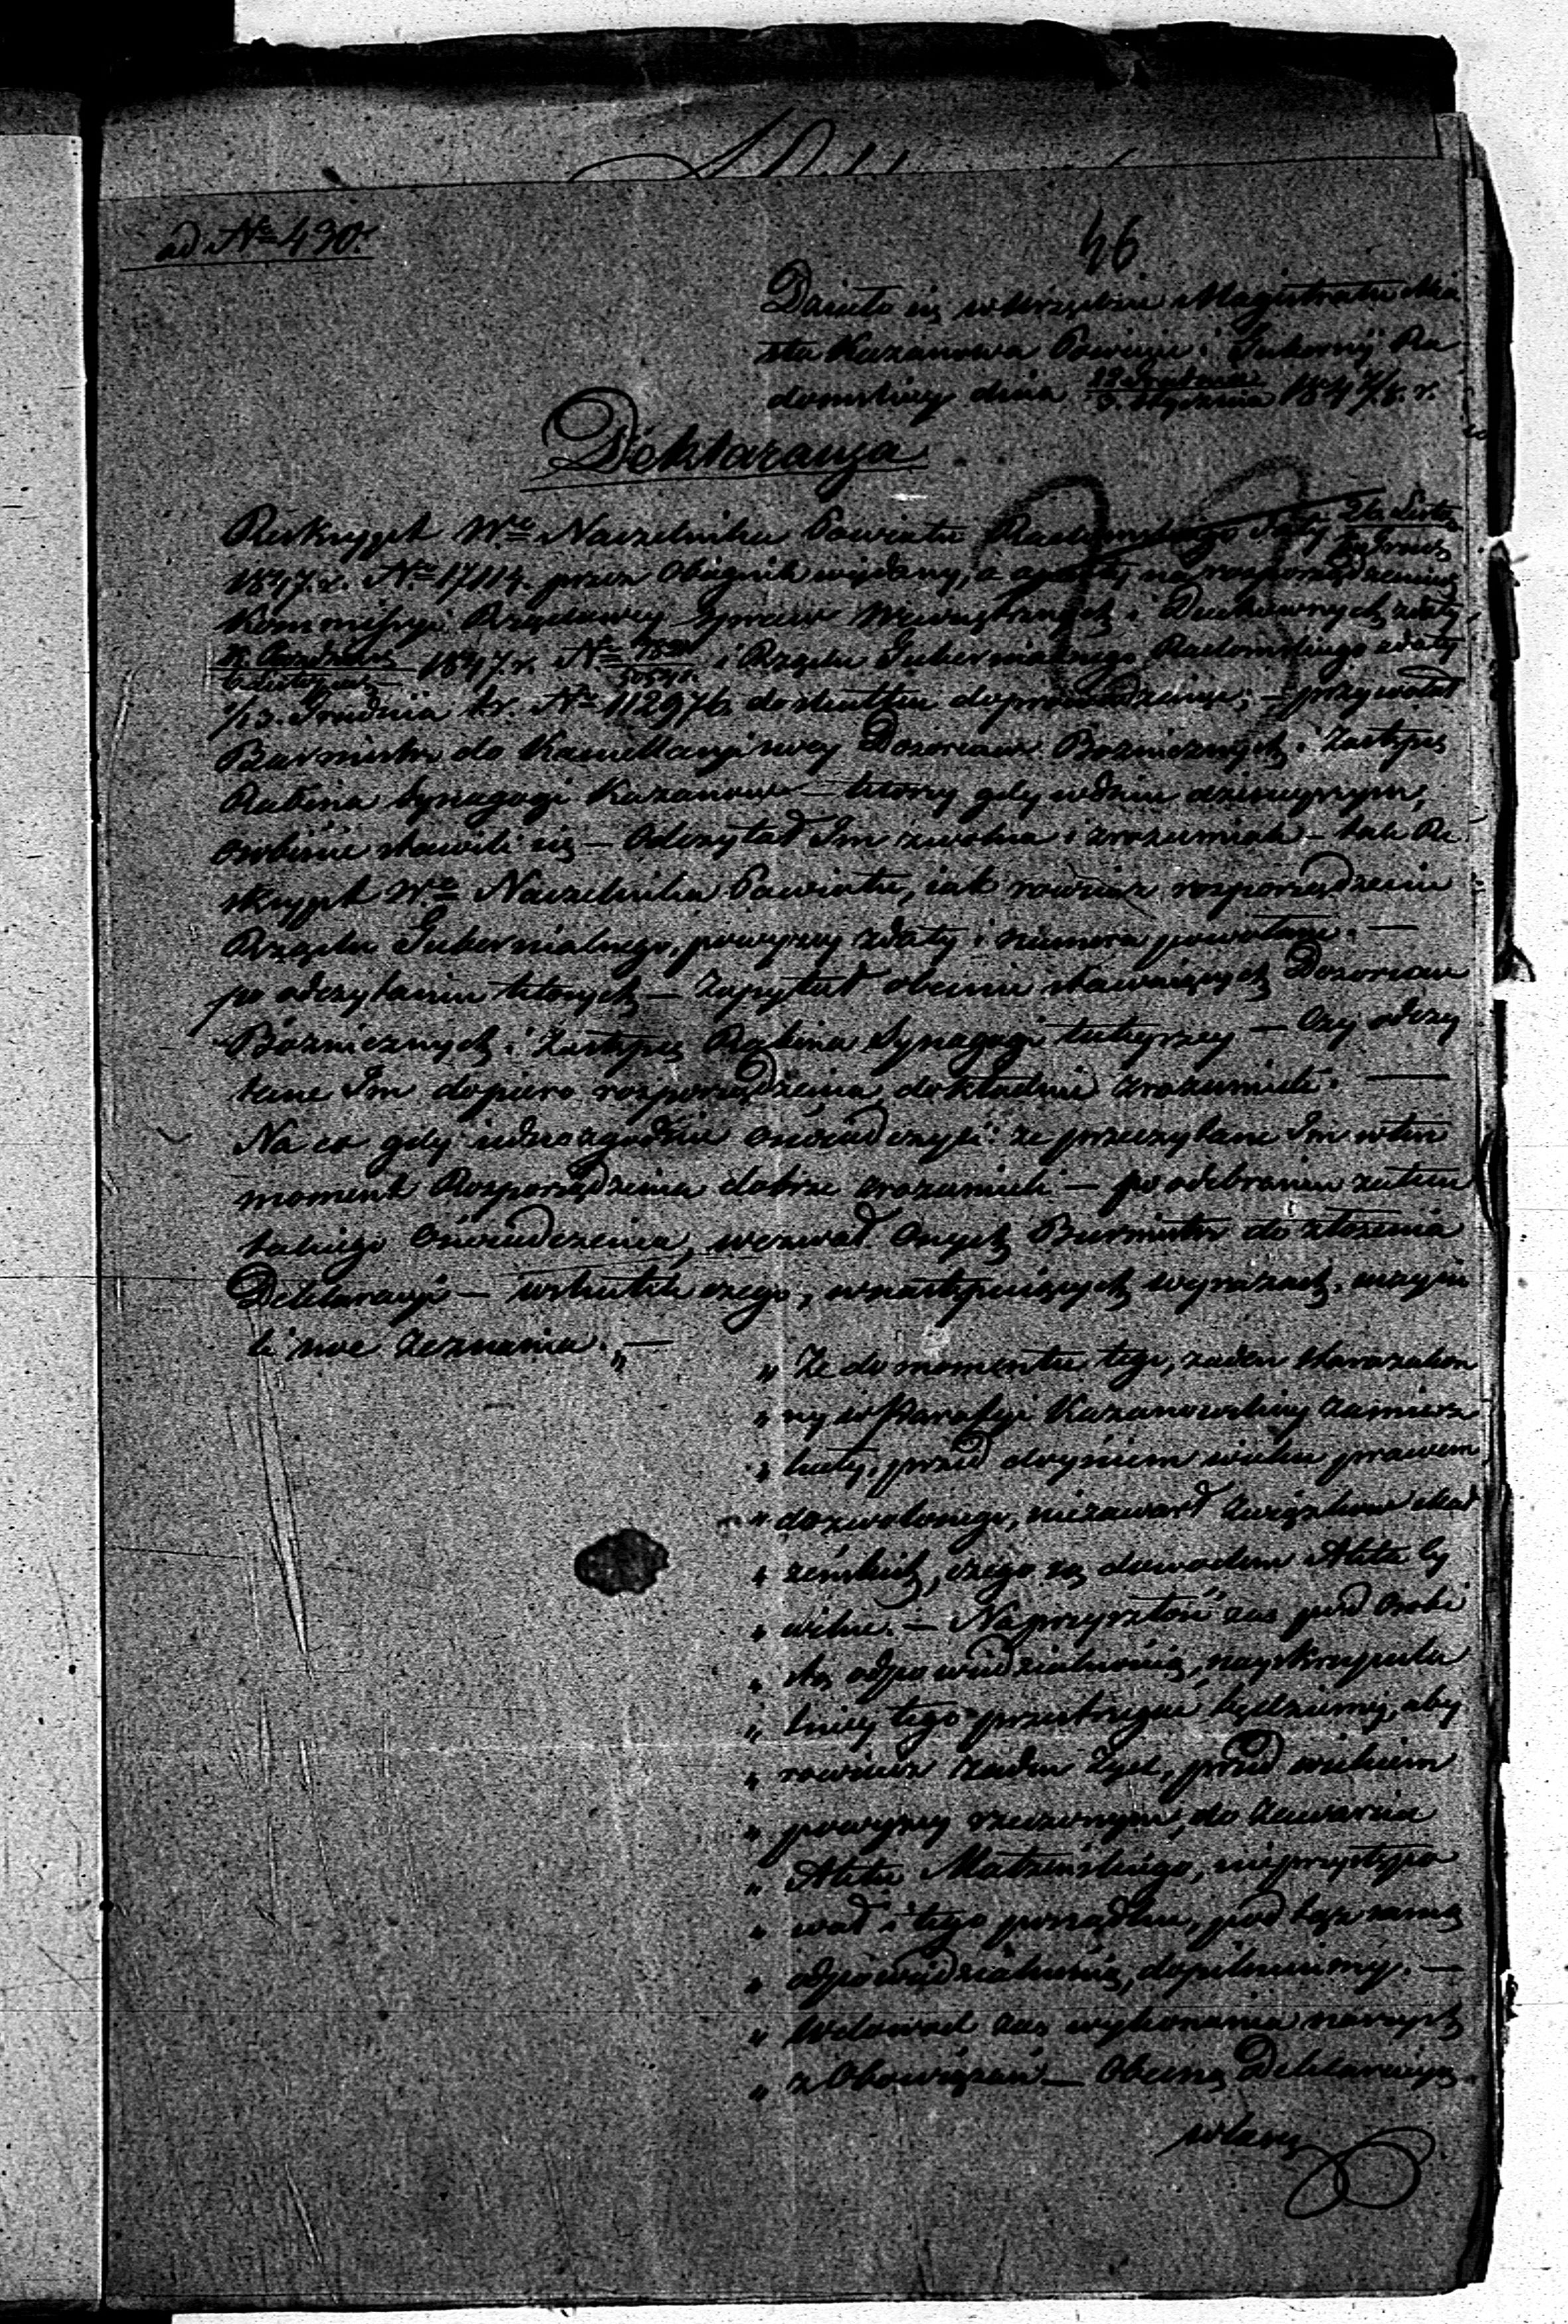 ad Nº 430.
46
Działo się w Urzędzie Magistratu Mia
sta Kazanowa Powiecie i Gubernij Ra
domskiey dnia 22 Grudnia / 3 Stycznia 1847/8 r.
Deklaracyja
Reskrypt Wº Naczelnika Powiatu Radomskiego Daty
1847 r. Nº 17114. przez Obiegnik wydany, a oparty na rozporządzeniu
Kommissyi Rządowey Spraw Wewnętrznych i Duchownych z daty
1847 r. Nº i Rządu Gubernialnego Radomskiego z daty
1/13 Grudnia t. r. Nº 112976 do skutku doprowadzaiąc; – przywołał
Burmistrz do Kancellaryi swey Dozorców Bóżnicznych i Zastępcę
Rabina Synagogi Kazanow – którzy gdy w dniu dzisieyszym,
osobiście stawili się – Odczytał Im zwolna i zrozumiale – tak Re
skrypt Wº Naczelnika Powiatu, iak rownież rozporządzenie
Rządu Gubernialnego, powyżey z daty i numera powołane. —
po odczytaniu których – Zapytał obecnie stawaiących Dozorców
Bóżnicznych i Zastępcę Rabina Synagogi tuteyszey – Czy odczy
tane Im dopiero rozporządzenia dokładnie zrozumieli. —
Na co gdy iednozgodnie oświadczyli: że przeczytane Im w ten
moment Rozporządzenia dobrze zrozumieli – po odebraniu zatem
takiego Oświadczenia, wezwał Onych Burmistrz do złożenia
Deklaracyi – wskutek czego, w następuiących wyrazach, uczyni
li swe Zeznania. „ —
„ Że do momentu tego, żaden starozakon
„ ny w Parafyi Kazanowskiey zamiesz
„ kały, przed doyściem wieku prawem
„ dozwolonego, niezawarł Związków Mał
„ żeńskich, czego są dowodem Akta Cy
„ wilne. – Na przyszłość zaś pod Osobi
„ stą odpowiedzialnością, nayskrupula
„ tniey tego przestrzegać będziemy, aby
„ rownież żaden Żyd, przed wiekiem
„ powyżey rzeczonym, do Zawarcia
„ Aktu Małżeńskiego, nieprzystępo
„ wał i tego porządku, pod tąż samą
„ odpowiedzialnością, dopilnuiemy. —
„ W dowód zaś wykonania naszych
„ zObowiązań – Obecną Deklaracyją
własną